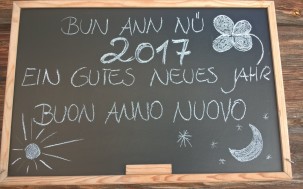 BUN ANN NÜ
2017
EIN GUTES NEUES JAHR
BUON ANNO NUOVO